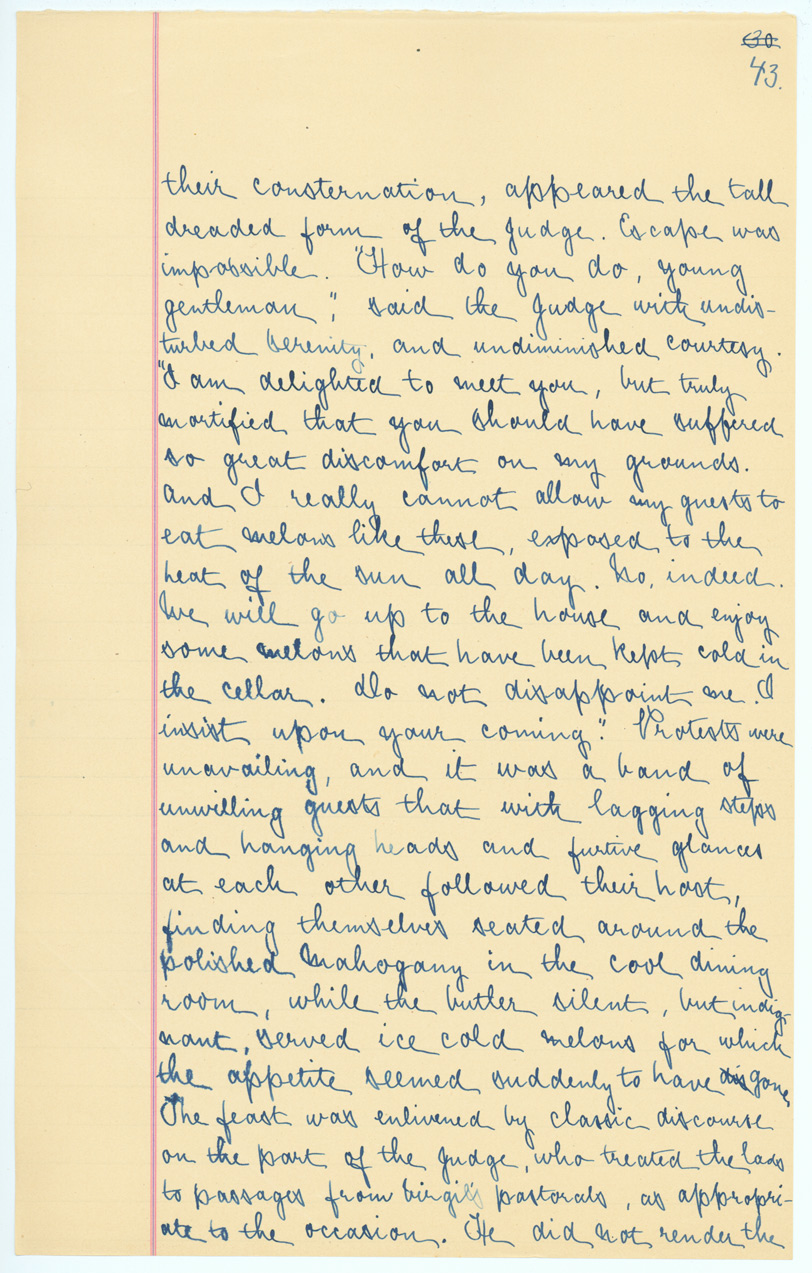 30
43.
their consternation, appeared the tall
dreaded form of the Judge. Escape was
impossible. "How do you do, young
gentleman", said the Judge with undis-
turbed serenity, and undiminished courtesy.
"I am delighted to meet you, but truly
mortified that you should have suffered
so great discomfort on my grounds.
And I really cannot allow my guests to
eat melons like these, exposed to the
heat of the sun all day. No, indeed.
We will go up to the house and enjoy
some melons that have been kept cold in
the cellar. Do not disappoint me. I
insist upon your coming". Protests were
unavailing, and it was a band of
unwilling guests that with lagging steps
and hanging heads and furtive glances
at each other followed their host,
finding themselves seated around the
polished mahogany in the cool dining
room, while the butler silent, but indig-
nant, served ice cold melons for which
the appetite seemed suddenly to have dis gone.
The feast was enlivened by classic discourse
on the part of the Judge, who treated the lads
to passages from Virgil's pastorals, as appropri-
ate to the occasion. He did not render the